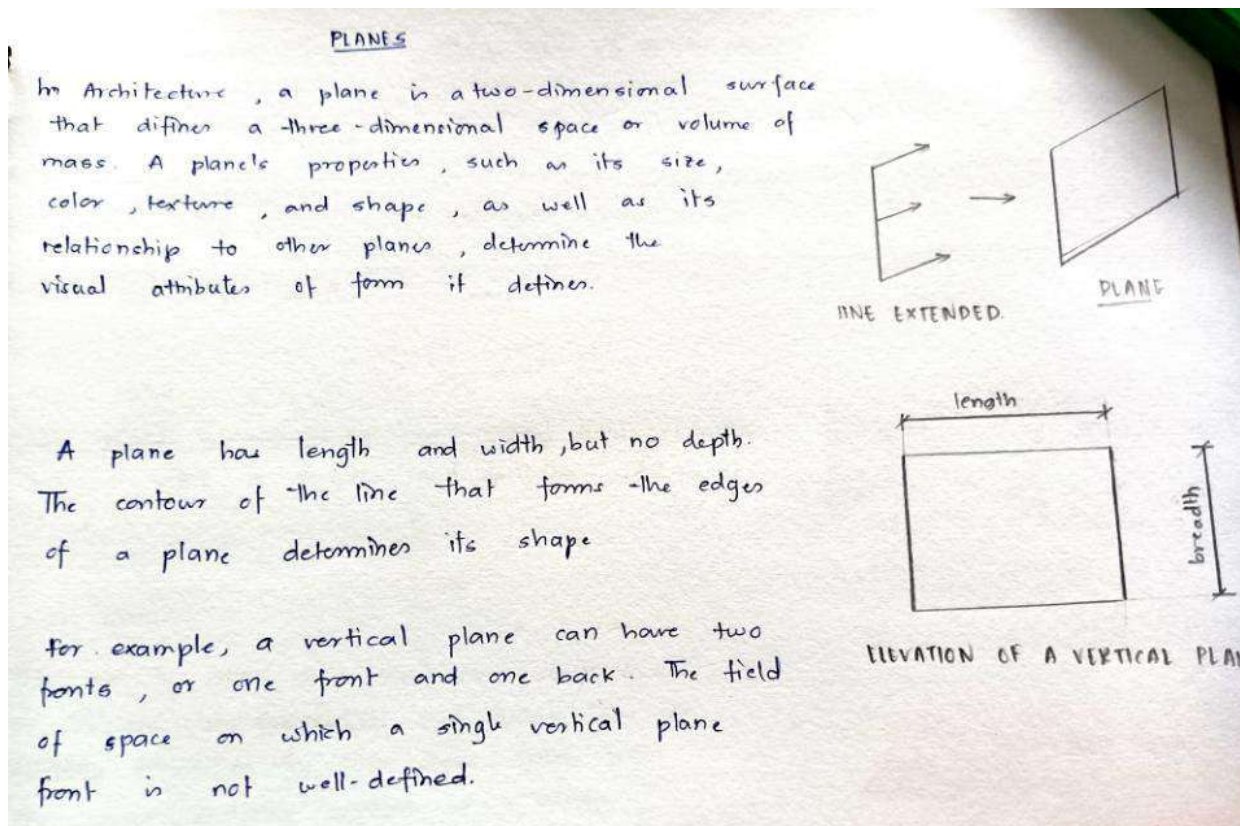 PLANES
In Architecture, a plane is a two-dimensional surface
that difines a three-dimensional space or volume of
mass. A plane's properties, such as its size,
color, texture, and shape, as well as its
relationship to other planes, determine the
visual attributes of form it defines.
LINE EXTENDED.
PLANE
A plane has length and width, but no depth.
The contour of the line that forms the edges
of a plane determines its shape
length
breadth
ELEVATION OF A VERTICAL PLAN
for example, a vertical plane can have two
fonts, or one front and one back. The field
of space on which a single vertical plane
front is not well-defined.